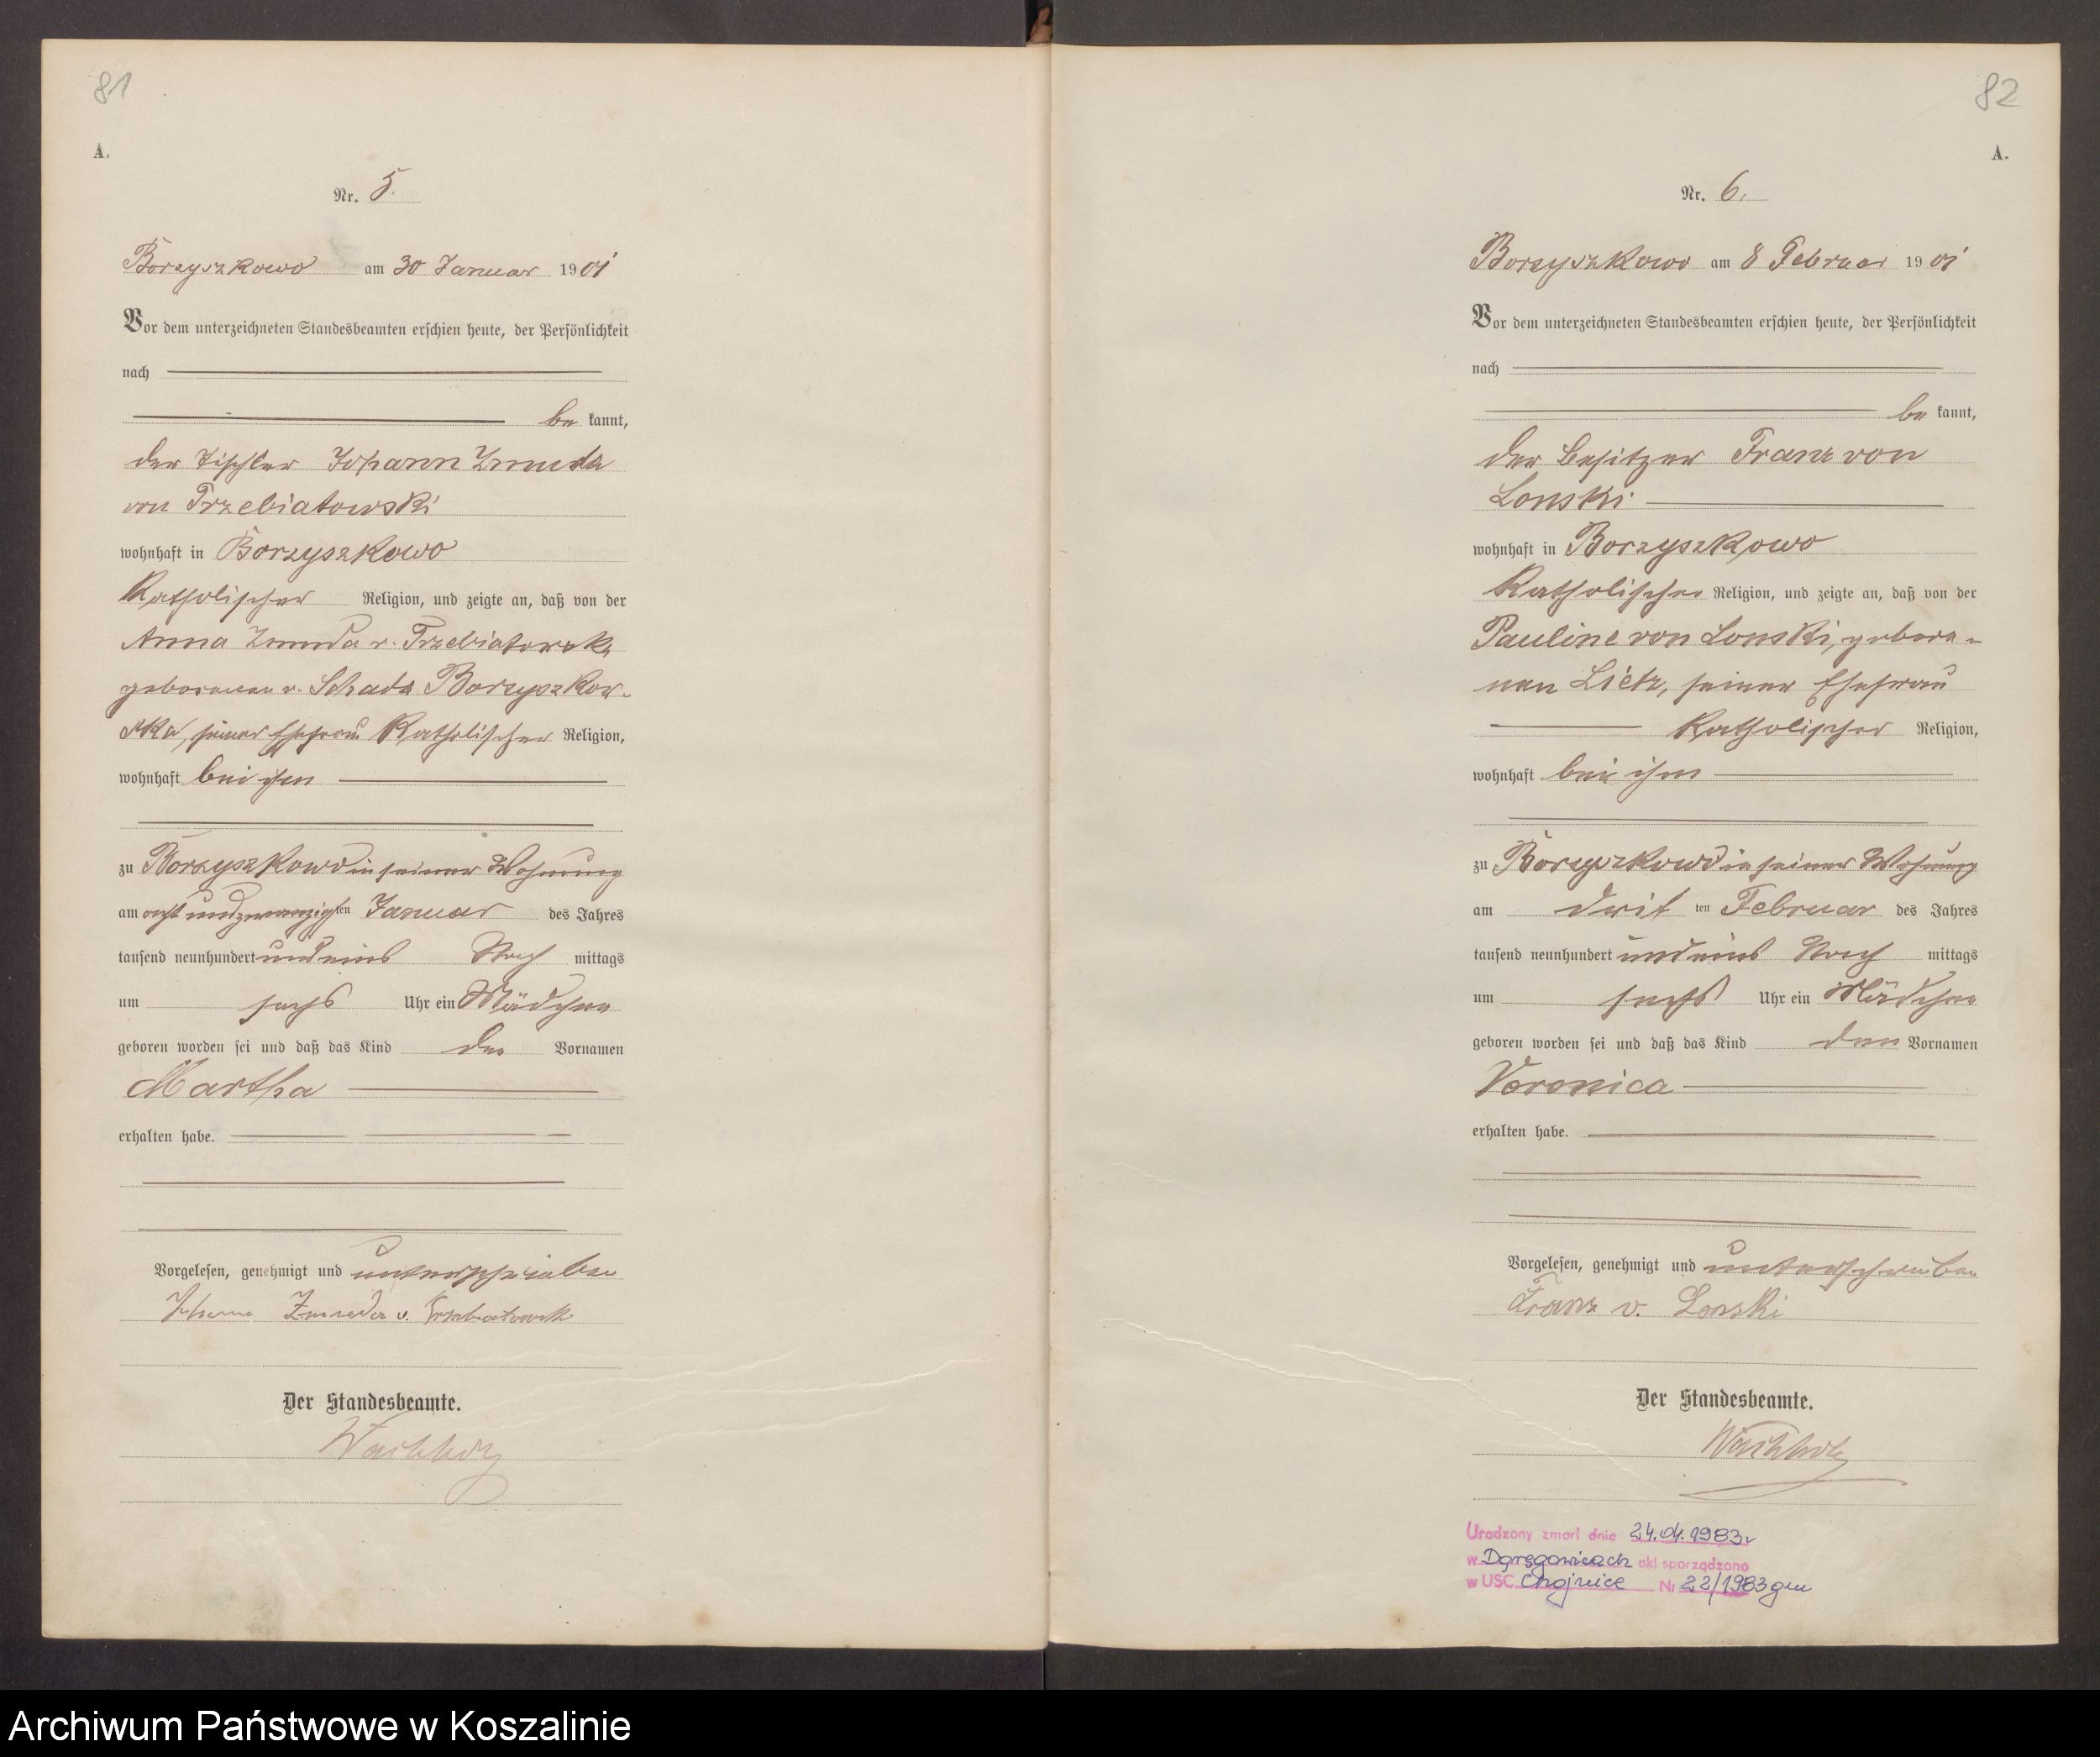 81
A.
Nr. 5.
Borzyszkowo am 30 Januar 1901
Vor dem unterzeichneten Standesbeamten erschien heute, der Persönlichkeit
nach
be kannt,
der Tischler Johann Zmuda
von Trzebiatowski
wohnhaft in Borzyszkowo
Katholischer Religion, und zeigte an, daß von der
Anna Zmuda v. Trzebiatowska
geborenen v. Schada Borzyszkow-
ska, seiner Ehefrau Katholischer Religion,
wohnhaft bei ihm
zu Borzyszkowo in seiner Wohnung
am acht und zwanzigsten Januar des Jahres
tausend neunhundert und eins Nach mittags
um sechs Uhr ein Mädchen
geboren worden sei und daß das Kind den Vornamen
Martha
erhalten habe.
Vorgelesen, genehmigt und unterschrieben
Johann Zmuda v. Trzebiatowski
Der Standesbeamte.
Wachholz
82
A.
Nr. 6.
Borzyszkowo am 8 Februar 1901
Vor dem unterzeichneten Standesbeamten erschien heute, der Persönlichkeit
nach
be kannt,
der Besitzer Franz von
Lonski
wohnhaft in Borzyszkowo
Katholischer Religion, und zeigte an, daß von der
Pauline von Lonski, gebore-
nen Lietz, seiner Ehefrau
Katholischer Religion,
wohnhaft bei ihm
zu Borzyszkowo in seiner Wohnung
am drit ten Februar des Jahres
tausend neunhundert und eins Nach mittags
um sechs Uhr ein Mädchen
geboren worden sei und daß das Kind den Vornamen
Veronica
erhalten habe.
Vorgelesen, genehmigt und unterschrieben
Franz v. Lonski
Der Standesbeamte.
Wachholz
Urodzony zmarł dnia 24.04.1983 r
w Dąręgowicach akt sporządzono
w USC Chojnice Nr 22/1983 gm
Archiwum Państwowe w Koszalinie